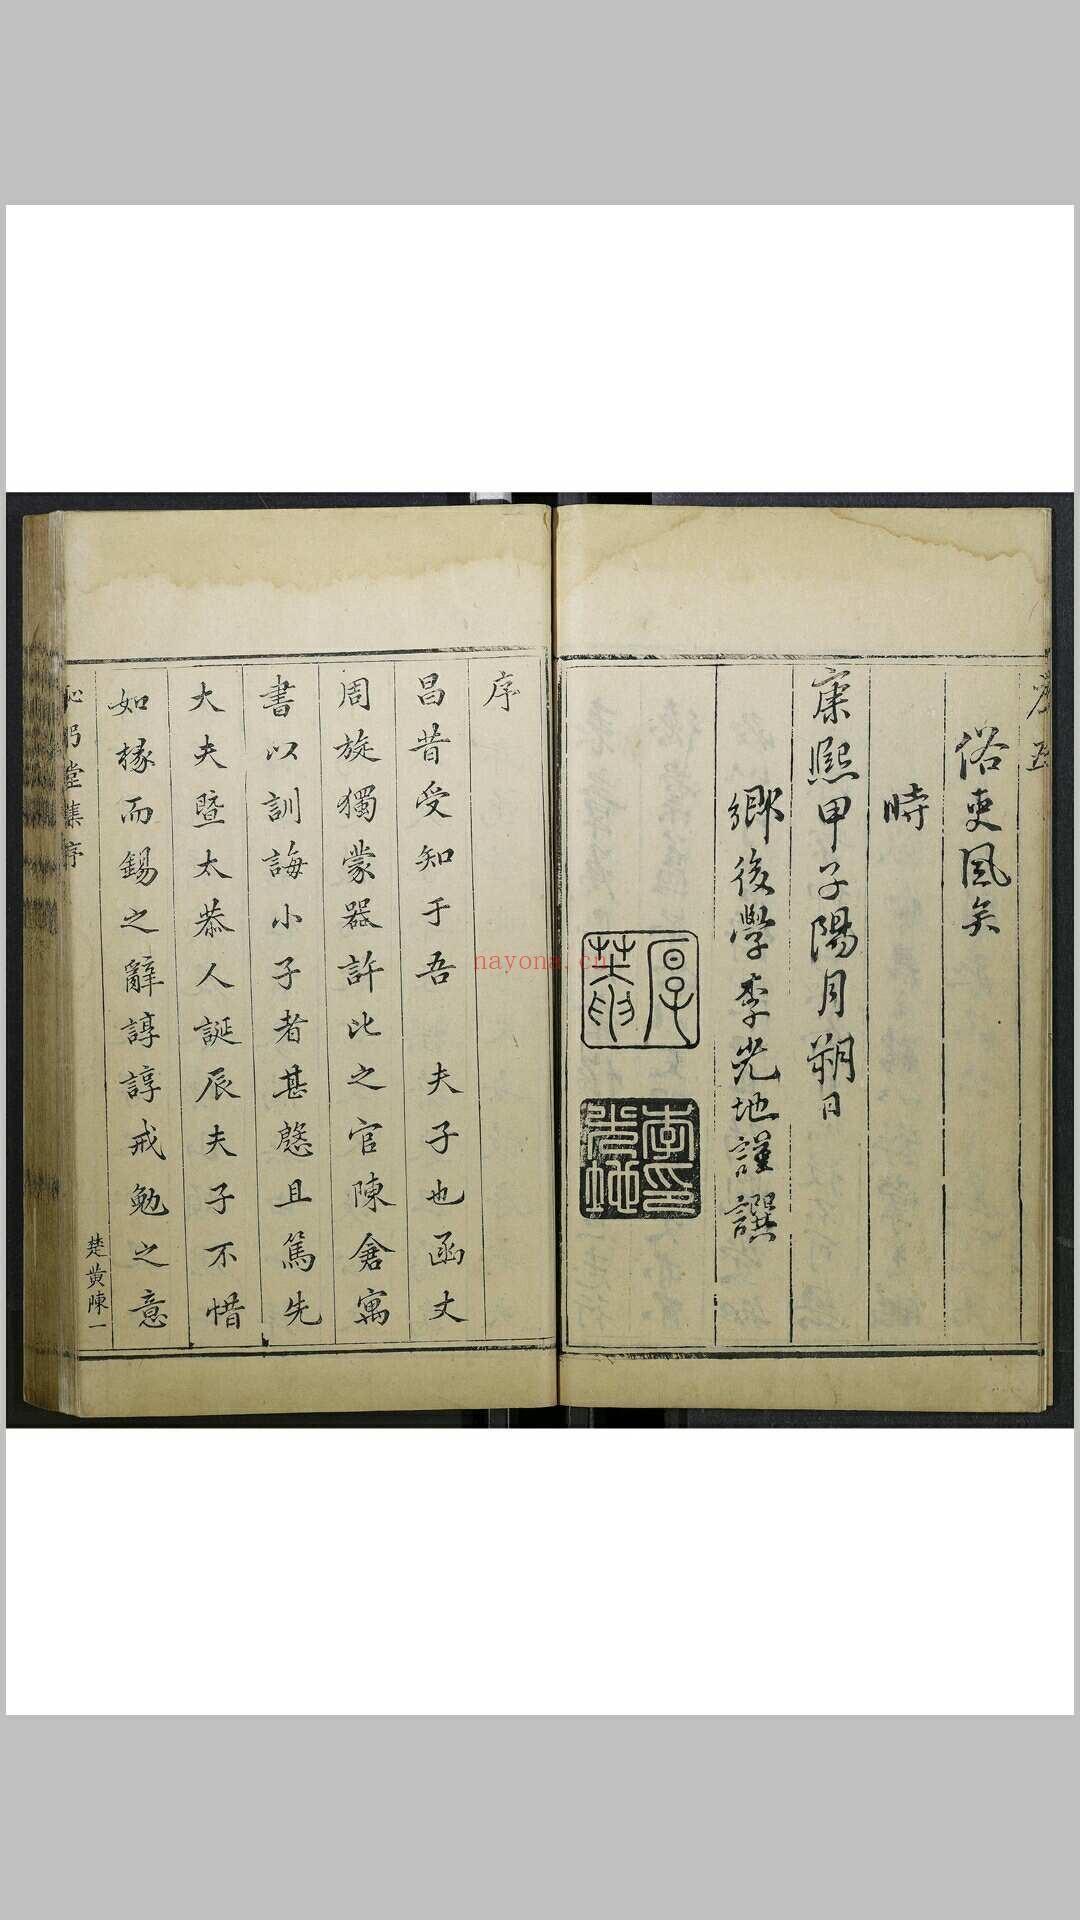 俗吏風矣
時
康熙甲子陽月朔日
鄉後學李光地謹譔
厚菴
李光地印
序
昌昔受知于吾夫子也函丈
周旋獨蒙器許比之官陳倉寓
書以訓誨小子者甚慇且篤先
大夫暨太恭人誕辰夫子不惜
如椽而錫之辭諄諄戒勉之意
堂集序
楚黄陳一
nayona.cn